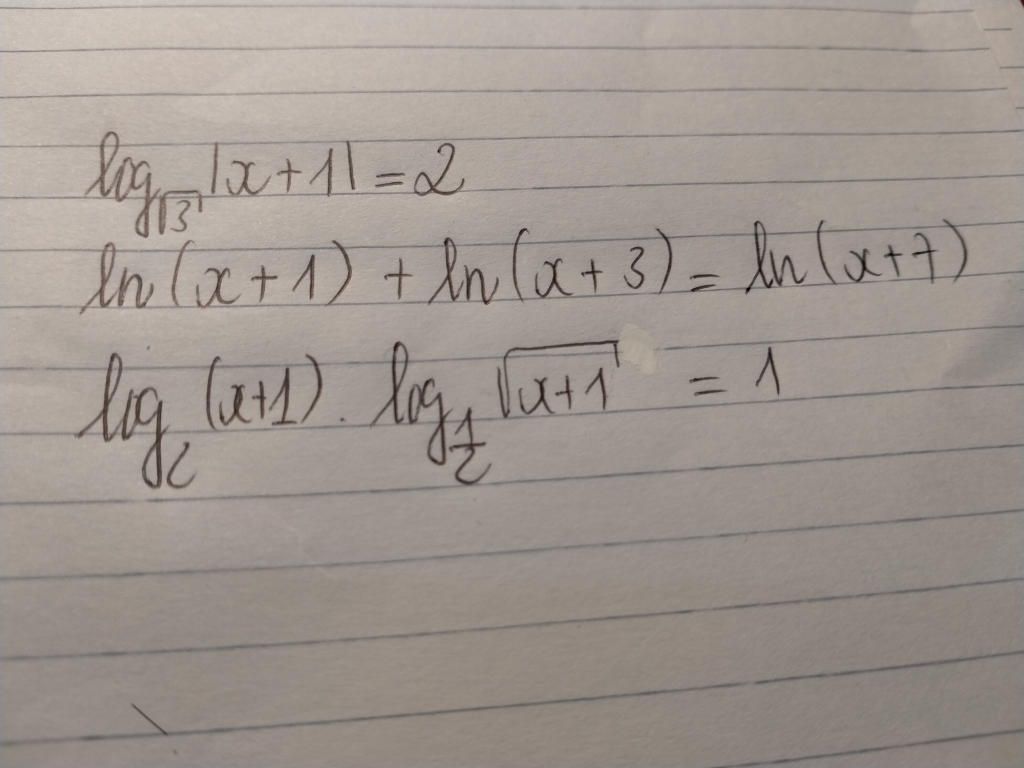 log_√3 |x+1| = 2
ln(x+1) + ln(x+3) = ln(x+7)
log_2 (x+1) . log_1/2 √(x+1) = 1